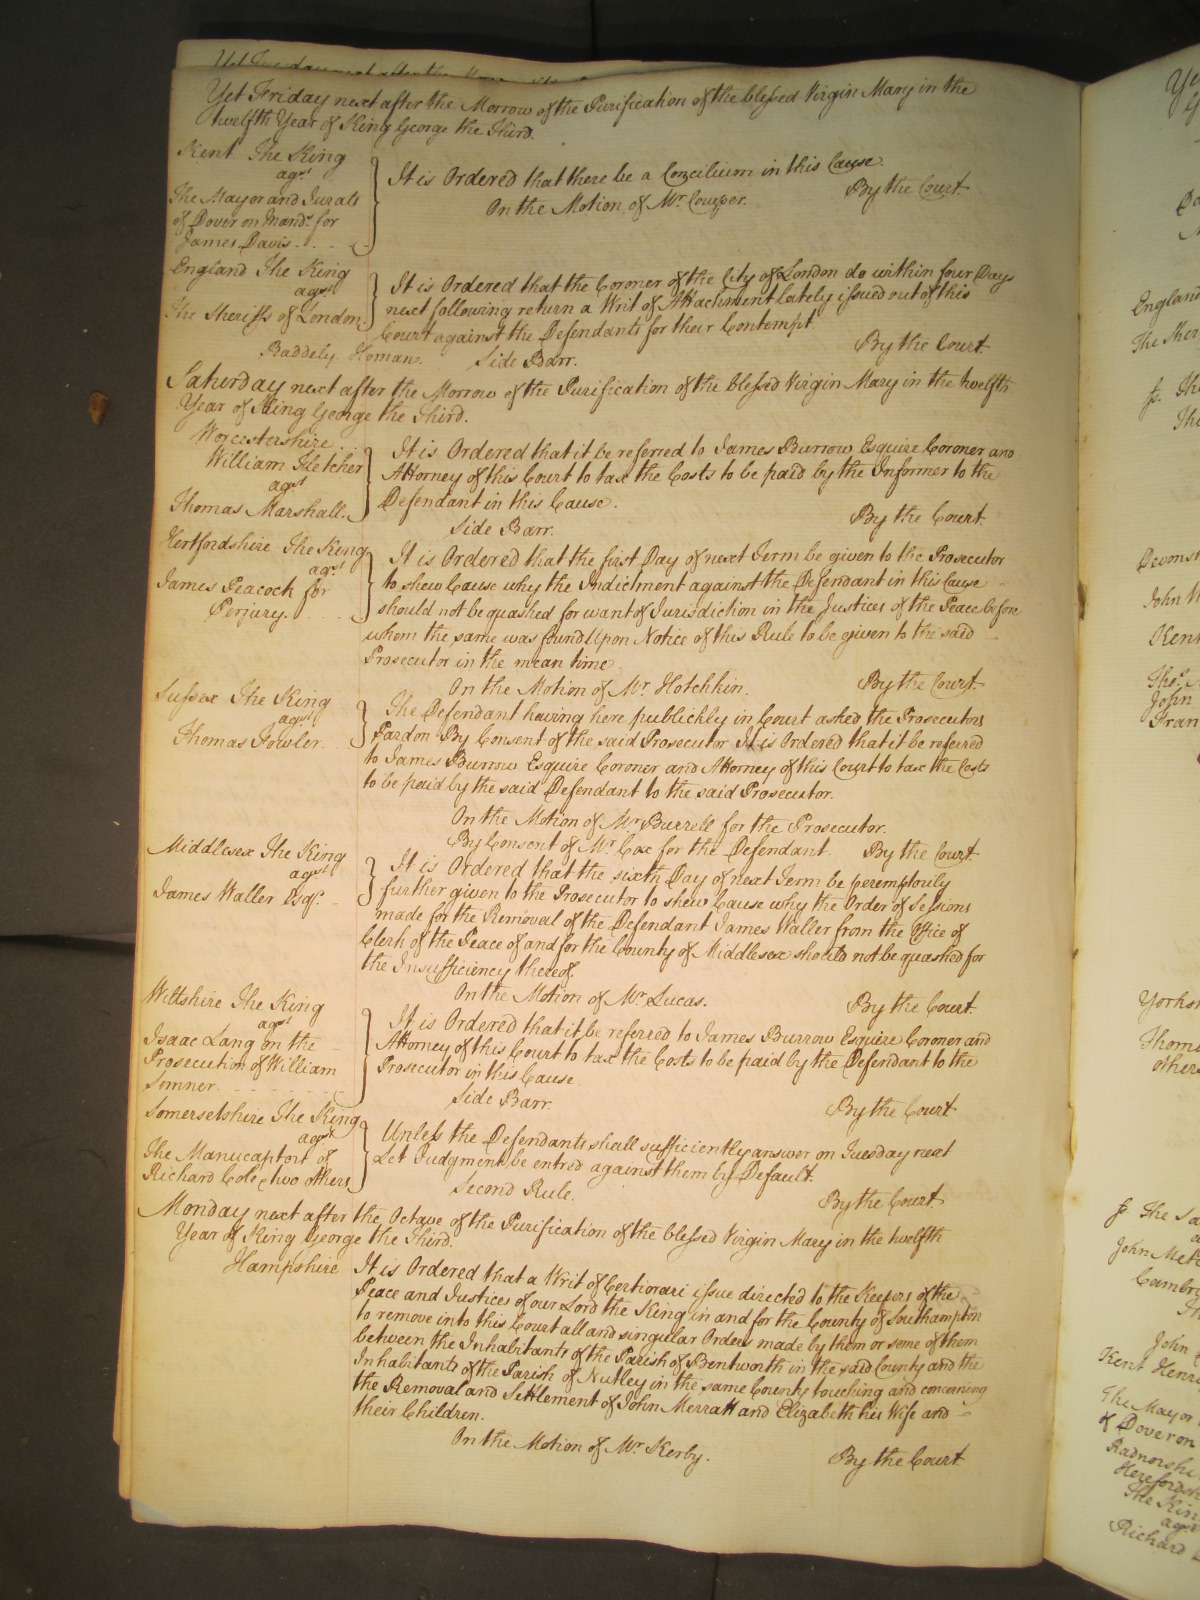 Yet Friday next after the Morrow of the Purification of the blessed Virgin Mary in the
twelfth Year of King George the Third.
Kent The King
agst
The Mayor and Jurats
of Dover on Mands for
James Davis
It is Ordered that there be a Concilium in this Cause.
On the Motion of Mr. Cowper. By the Court
England The King
agst
The Sheriffs of London
It is Ordered that the Coroner of the City of London do within four Days
next following return a Writ of Attachment lately issued out of this
Court against the Defendants for their Contempt.
Baddely. Homan. Side Barr. By the Court
Saturday next after the Morrow of the Purification of the blessed Virgin Mary in the twelfth
Year of King George the Third.
Worcestershire
William Fletcher
agst
Thomas Marshall.
It is Ordered that it be referred to James Burrow Esquire Coroner and
Attorney of this Court to tax the Costs to be paid by the Informer to the
Defendant in this Cause.
Side Barr. By the Court
Hertfordshire The King
agst
James Peacock for
Perjury.
It is Ordered that the first Day of next Term be given to the Prosecutor
to shew Cause why the Indictment against the Defendant in this Cause
should not be quashed for want of Jurisdiction in the Justices of the Peace before
whom the same was found Upon Notice of this Rule to be given to the said
Prosecutor in the mean time.
On the Motion of Mr. Hotchkin. By the Court
Sussex The King
agst
Thomas Fowler.
The Defendant having here publickly in Court asked the Prosecutors
Pardon By Consent of the said Prosecutor It is Ordered that it be referred
to James Burrow Esquire Coroner and Attorney of this Court to tax the Costs
to be paid by the said Defendant to the said Prosecutor.
On the Motion of Mr. Burrell for the Prosecutor.
By Consent of Mr. Cox for the Defendant. By the Court
Middlesex The King
agst
James Waller Esqr.
It is Ordered that the sixth Day of next Term be peremptorily
further given to the Prosecutor to shew Cause why the Order of Sessions
made for the Removal of the Defendant James Waller from the Office of
Clerk of the Peace of and for the County of Middlesex should not be quashed for
the Insufficiency thereof.
On the Motion of Mr. Lucas. By the Court
Wiltshire The King
agst
Isaac Lang on the
Prosecution of William
Somner
It is Ordered that it be referred to James Burrow Esquire Coroner and
Attorney of this Court to tax the Costs to be paid by the Defendant to the
Prosecutor in this Cause
Side Barr. By the Court
Somersetshire The King
agst
The Manucaptors of
Richard Cole & two others
Unless the Defendants shall sufficiently answer on Tuesday next
Let Judgment be entred against them by Default.
Second Rule. By the Court
Monday next after the Octave of the Purification of the blessed Virgin Mary in the twelfth
Year of King George the Third.
Hampshire It is Ordered that a Writ of Certiorari issue directed to the Keepers of the
Peace and Justices of our Lord the King in and for the County of Southampton
to remove into this Court all and singular Orders made by them or some of them
between the Inhabitants of the Parish of Bentworth in the said County and the
Inhabitants of the Parish of Nutley in the same County touching and concerning
the Removal and Settlement of John Merratt and Elizabeth his Wife and
their Children.
On the Motion of Mr. Kerby. By the Court
England
The Sher
John
Kent
John
Fran
Yorksh
others
John
The Mayor
of Dover on
Radnorshi
Herefordsh
The Kin
agst
Richard